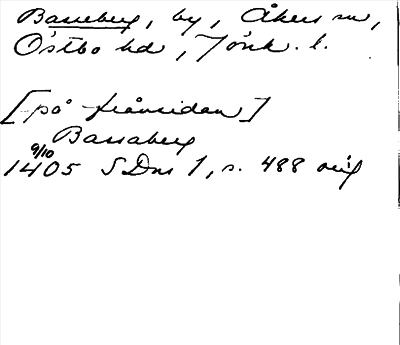 Basseberg, by, Åkers sn,
Östbo hd, Jönk. l.
[på framsidan]
Bassaberg
9/10
1405 SDns 1, s. 488 orig